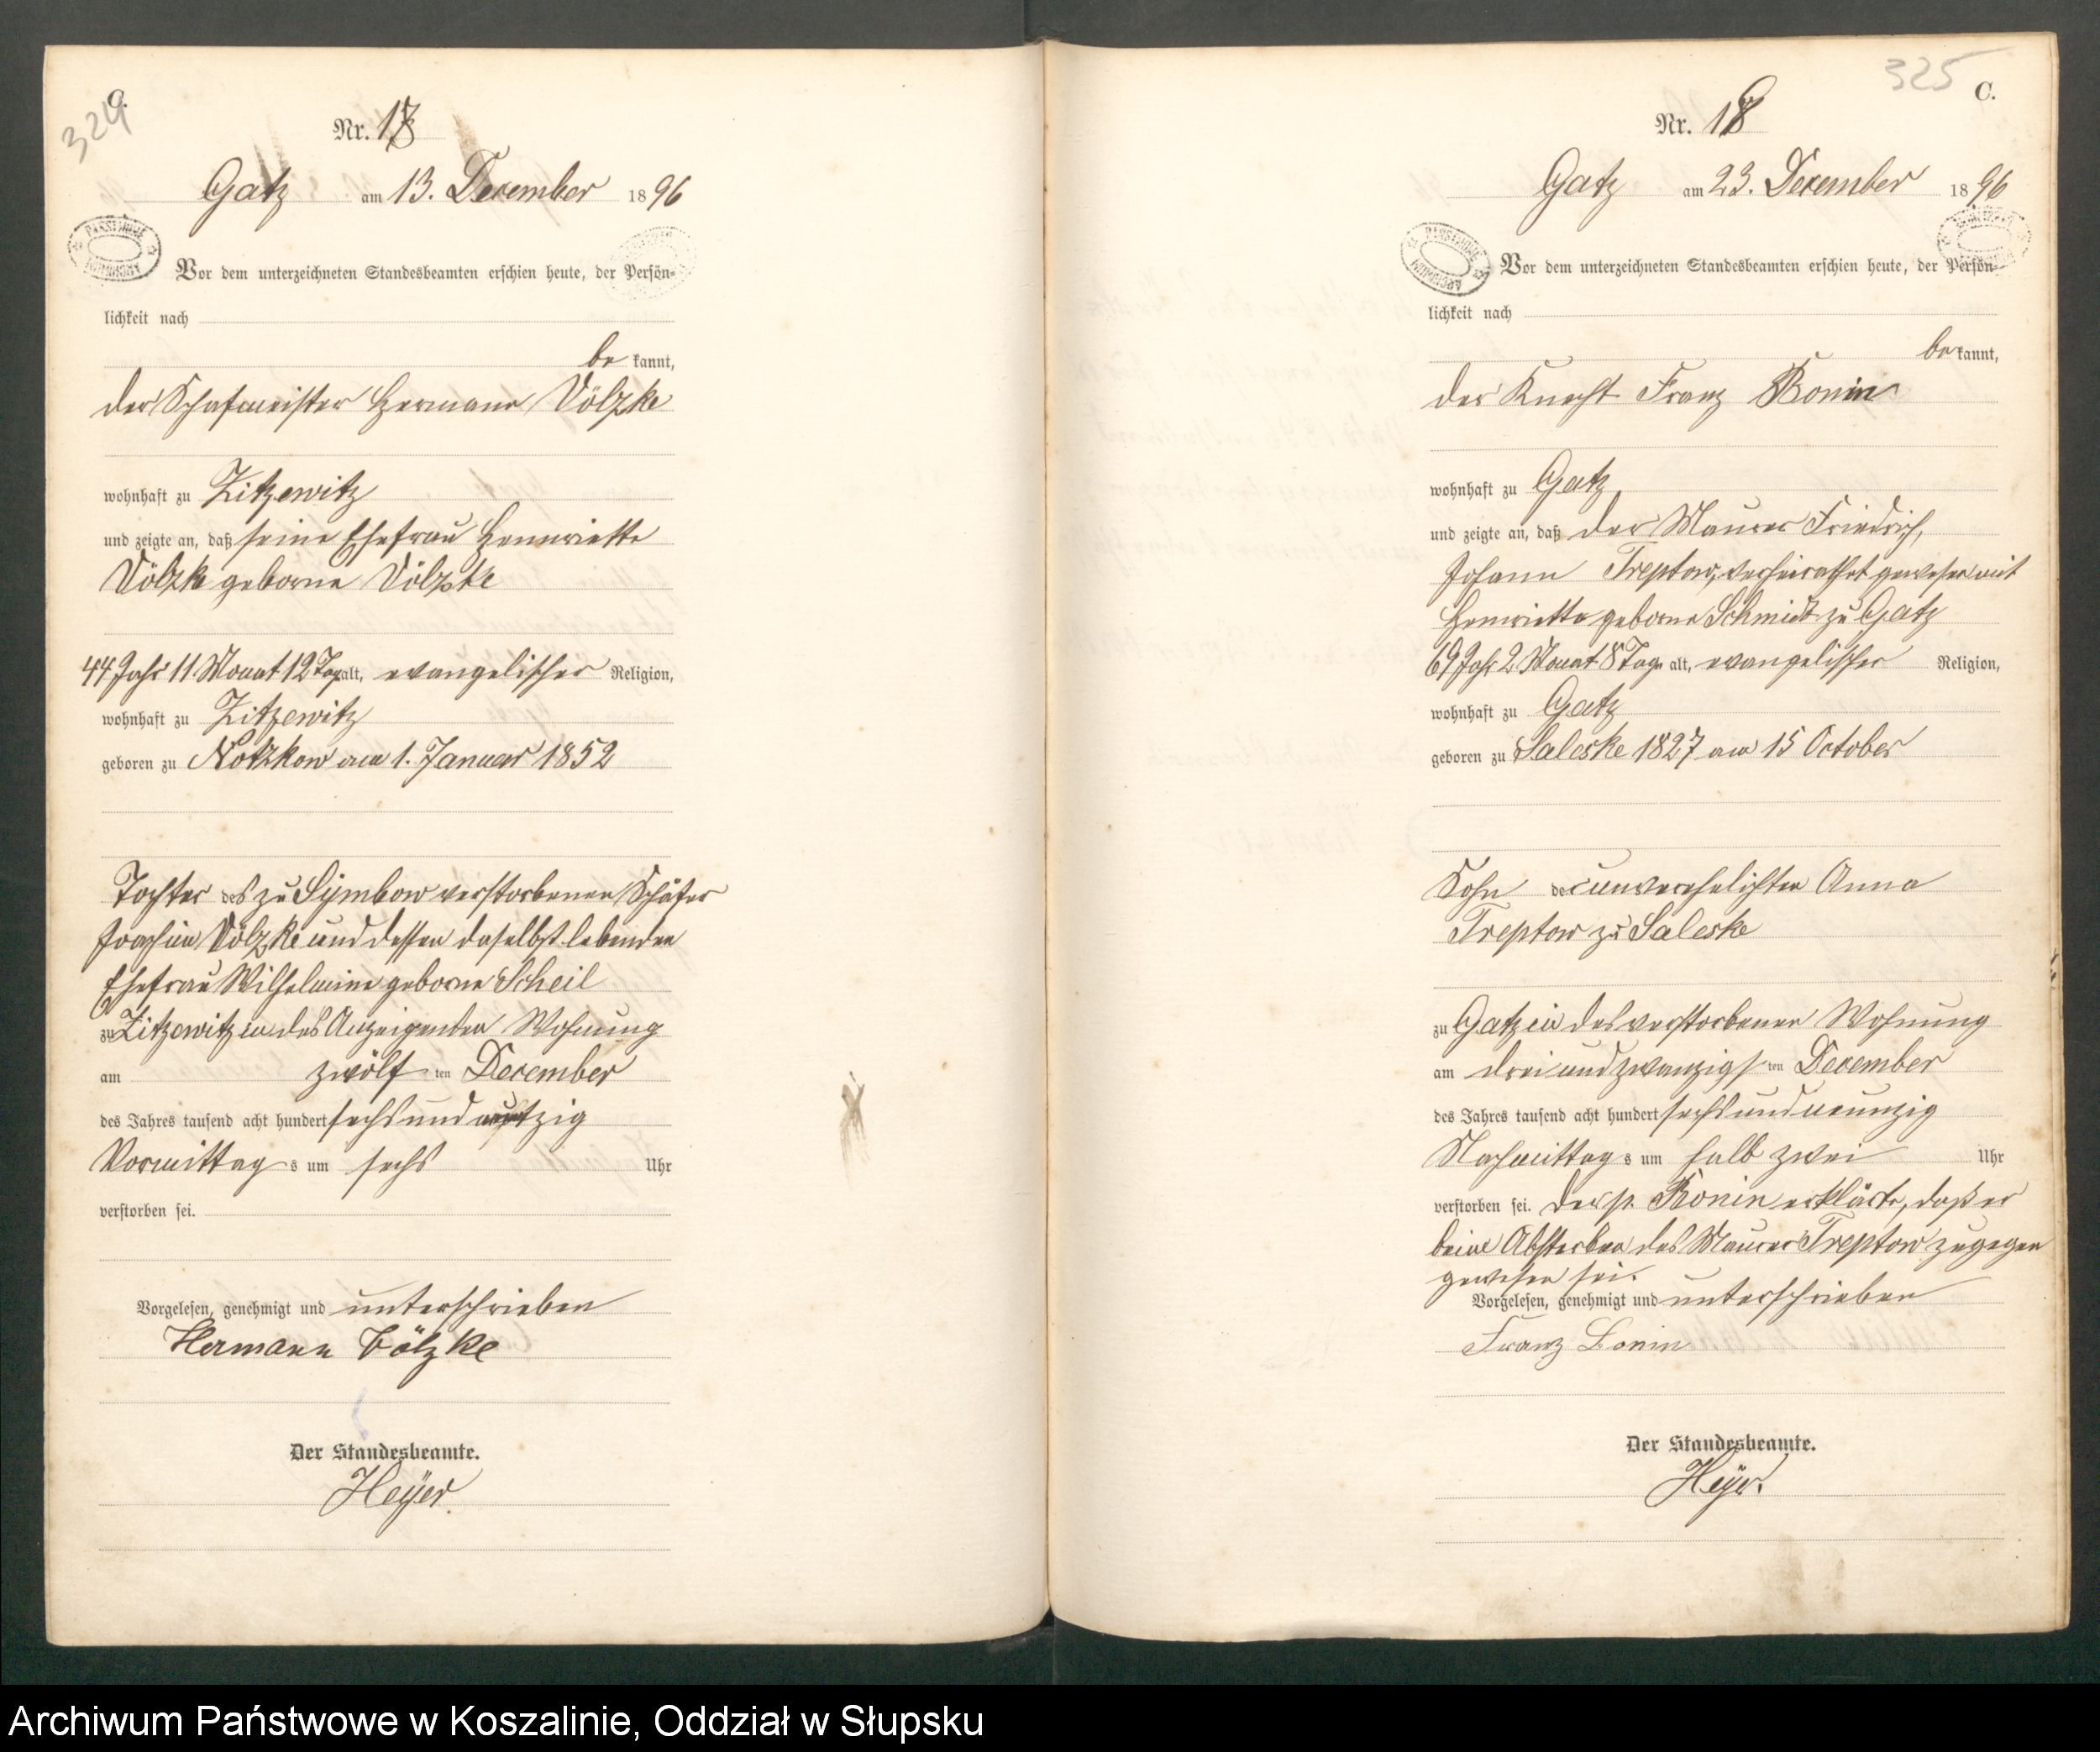 324
C.
Nr. 17
Gatz am 13. December 1896
Vor dem unterzeichneten Standesbeamten erschien heute, der Persön-
lichkeit nach
be kannt,
der Schafmeister Hermann Völzke
wohnhaft zu Zitzewitz
und zeigte an, daß seine Ehefrau Hennriette
Völzke geborne Völzke
44 Jahr 11 Monat 12 Tag alt, evangelischer Religion,
wohnhaft zu Zitzewitz
geboren zu Notzkow am 1. Januar 1852
Tochter des zu Symbow verstorbenen Schäfer
Joachim Völzke und dessen daselbst lebenden
Ehefrau Wilhelmine geborne Scheil
zu Zitzewitz in des Anzeigenden Wohnung
am zwölf ten December
des Jahres tausend acht hundert sechs und
Vormittag s um sechs Uhr
verstorben sei.
Vorgelesen, genehmigt und unterschrieben
Hermann Völzke
Der Standesbeamte.
Heÿer.
325
C.
Nr. 18
Gatz am 23. December 1896
Vor dem unterzeichneten Standesbeamten erschien heute, der Persön-
lichkeit nach
be kannt,
der Knecht Franz Bonin
wohnhaft zu Gatz
und zeigte an, daß der Maurer Friedrich,
Johann Treptow, verheirathet gewesen mit
Henriette geborne Schmidt zu Gatz
69 Jahr 2 Monat 8 Tage alt, evangelischer Religion,
wohnhaft zu Gatz
geboren zu Saleske 1827 am 15 October
Sohn der unverehelichten Anna
Treptow zu Saleske
zu Gatz in des verstorbenen Wohnung
am drei und zwanzigs ten December
des Jahres tausend acht hundert sechs und neunzig
Nachmittag s um halb zwei Uhr
verstorben sei. Der p. Bonin erklärte, daß er
beim Absterben des Maurer Treptow zugegen
gewesen sei.
Vorgelesen, genehmigt und unterschrieben
Franz Bonin
Der Standesbeamte.
Heÿer.
Archiwum Państwowe w Koszalinie, Oddział w Słupsku